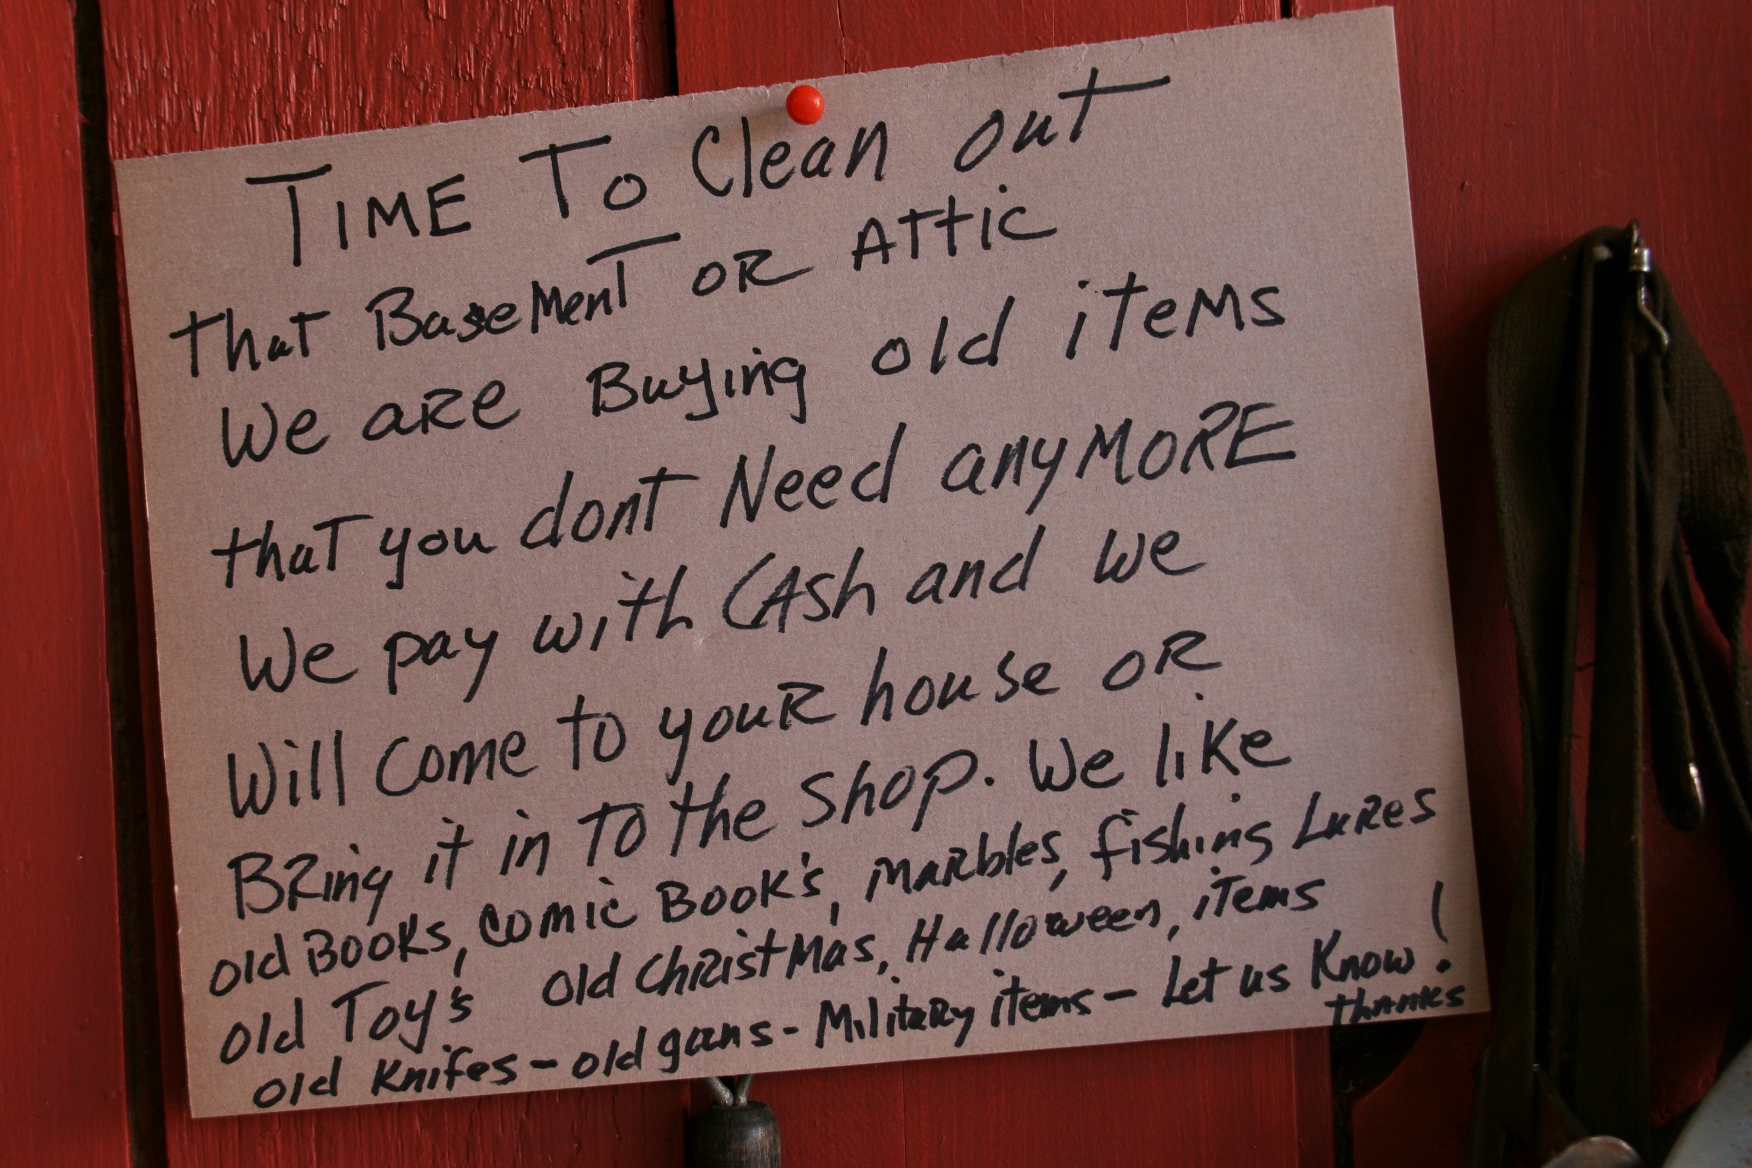 TIME To Clean out
that BaseMenT OR ATtic
We aRe Buying old iteMs
thaT you dont Need anyMORE
We pay with CASh and We
Will Come to youR house OR
BRing it in TO the shop. We like
old Books, Comic Book's, MaRbles, fishing LuRes
old Toy's old ChRistMas, Halloween, iTems
old Knifes - old guns - MilitaRy items - Let us Know!
thanks